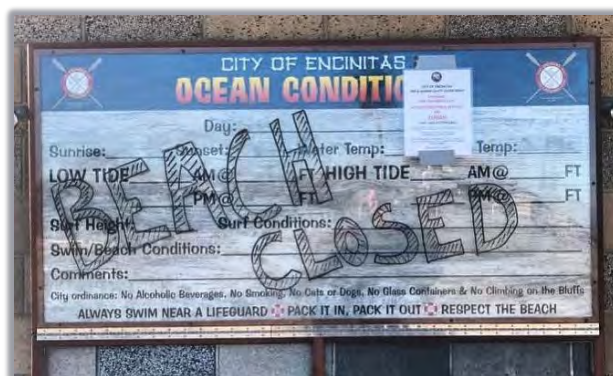 CITY OF ENCINITAS
OCEAN CONDITIO
CITY OF ENCINITAS
CLOSED
Day:
Sunrise: Sunset: Water Temp: Temp:
LOW TIDE AM@ FT HIGH TIDE AM@ FT
PM@ FT PM@ FT
BEACH
Surf Height: Surf Conditions:
CLOSED
Swim/Beach Conditions:
Comments:
City ordinance: No Alcoholic Beverages, No Smoking, No Cats or Dogs, No Glass Containers & No Climbing on the Bluffs
ALWAYS SWIM NEAR A LIFEGUARD PACK IT IN, PACK IT OUT RESPECT THE BEACH